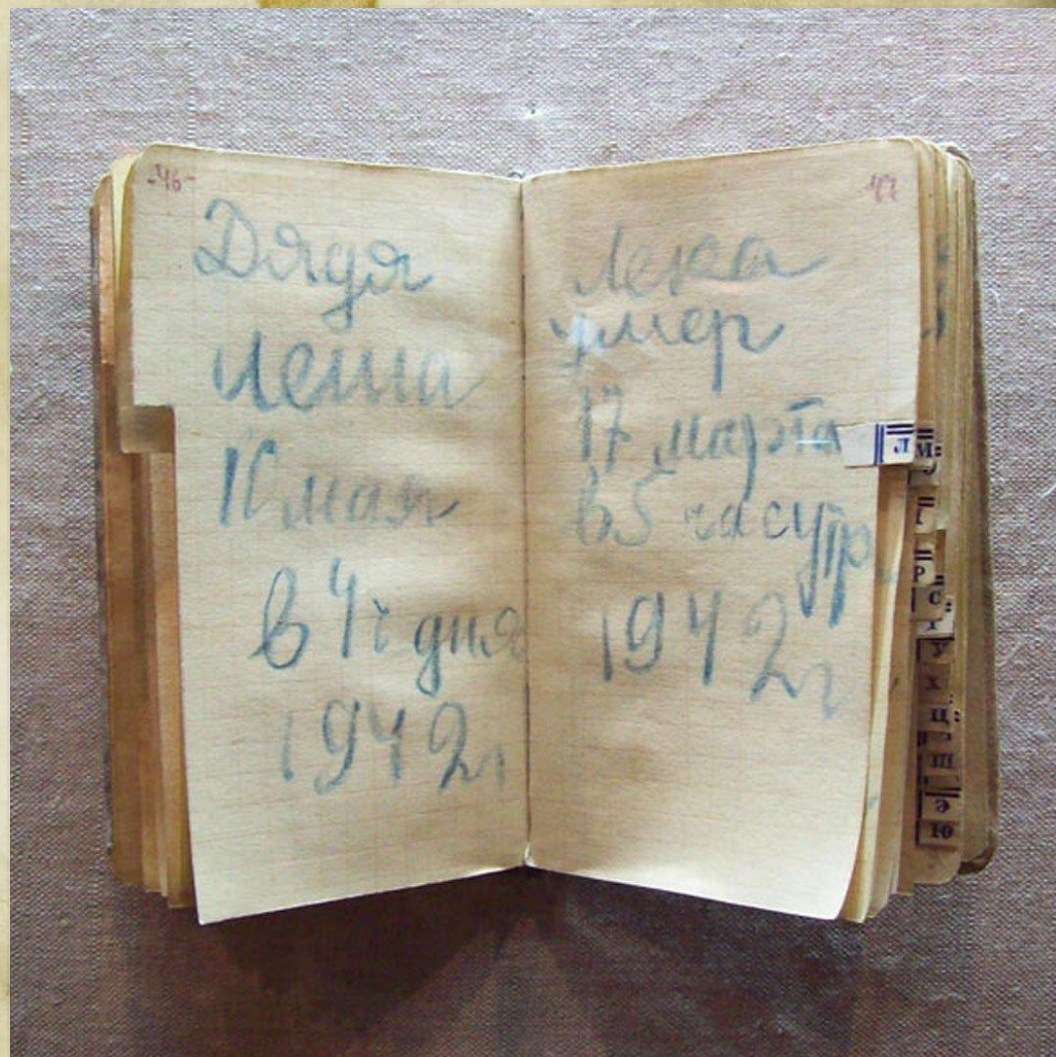 -46-
Дядя
Леша
10 мая
в 4 ч дня
1942 г
47
Лека
умер
17 марта
в 5 час утр
1942 г
Л
М
Р
С
Т
У
Х
Ц
Ш
Э
Ю